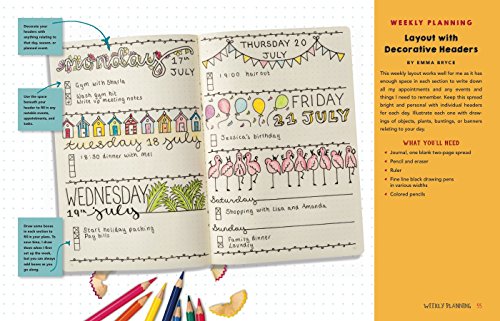 Decorate your
headers with
anything relating to
that day, season, or
planned event.
Use the space
beneath your
header to fill in any
notable events,
appointments, and
tasks.
Draw some boxes
in each section to
fill in your plans. To
save time, I draw
these when I first
set up the week,
but you can always
add boxes as you
go along.
monday 17th
JULY
Gym with Sheila
Wash gym kit
Write up meeting notes
tuesday 18 july
18:30 dinner with Mel
WEDNESDAY
19th july
Start holiday packing
Pay bills
THURSDAY 20
JULY
19:00 haircut
FRIDAY
21 JULY
Jessica's birthday
Saturday
Shopping with Lisa and Amanda
Sunday
Family dinner
Laundry
WEEKLY PLANNING
Layout with
Decorative Headers
BY EMMA BRYCE
This weekly layout works well for me as it has
enough space in each section to write down
all my appointments and any events and
things I need to remember. Keep this spread
bright and personal with individual headers
for each day. Illustrate each one with draw-
ings of objects, plants, buntings, or banners
relating to your day.
WHAT YOU'LL NEED
• Journal, one blank two-page spread
• Pencil and eraser
• Ruler
• Fine line black drawing pens
in various widths
• Colored pencils
WEEKLY PLANNING 55